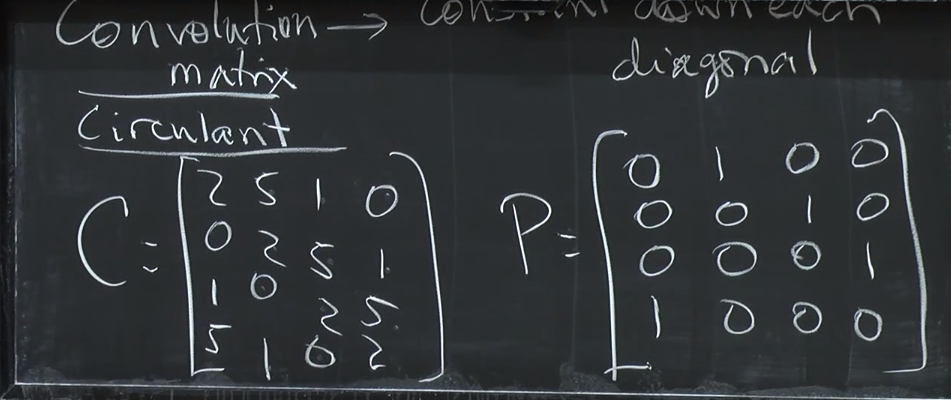 Convolution → constant down each
matrix diagonal
Circulant
C = [2 5 1 0 P = [0 1 0 0
0 2 5 1 0 0 1 0
1 0 2 5 0 0 0 1
5 1 0 2] 1 0 0 0]